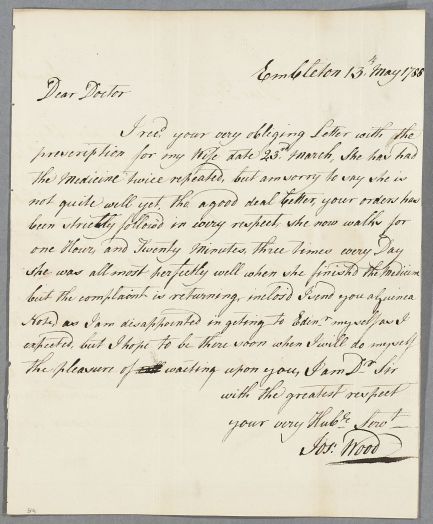 Embleton 13th May 1788
Dear Doctor
I recd. your very obliging Letter with the
prescription for my Wife date 23rd March, She has had
the Medicine twice repeated, but am sorry to say she is
not quite well yet, tho a good deal better, your orders has
been strictly follow'd in every respect, she now walks for
one Hour, and Twenty Minutes, three times every Day
She was all most perfectly well when she finish'd the Medicine
but the complaint is returning, inclosd I send you a Guinea
Note, as I am disappointed in geting to Edenr. myself as I
expected, but I hope to be there soon when I will do myself
the pleasure of waiting upon you, I am Dr. Sir
with the greatest respect
your very Hube. Servt.
Jos: Wood